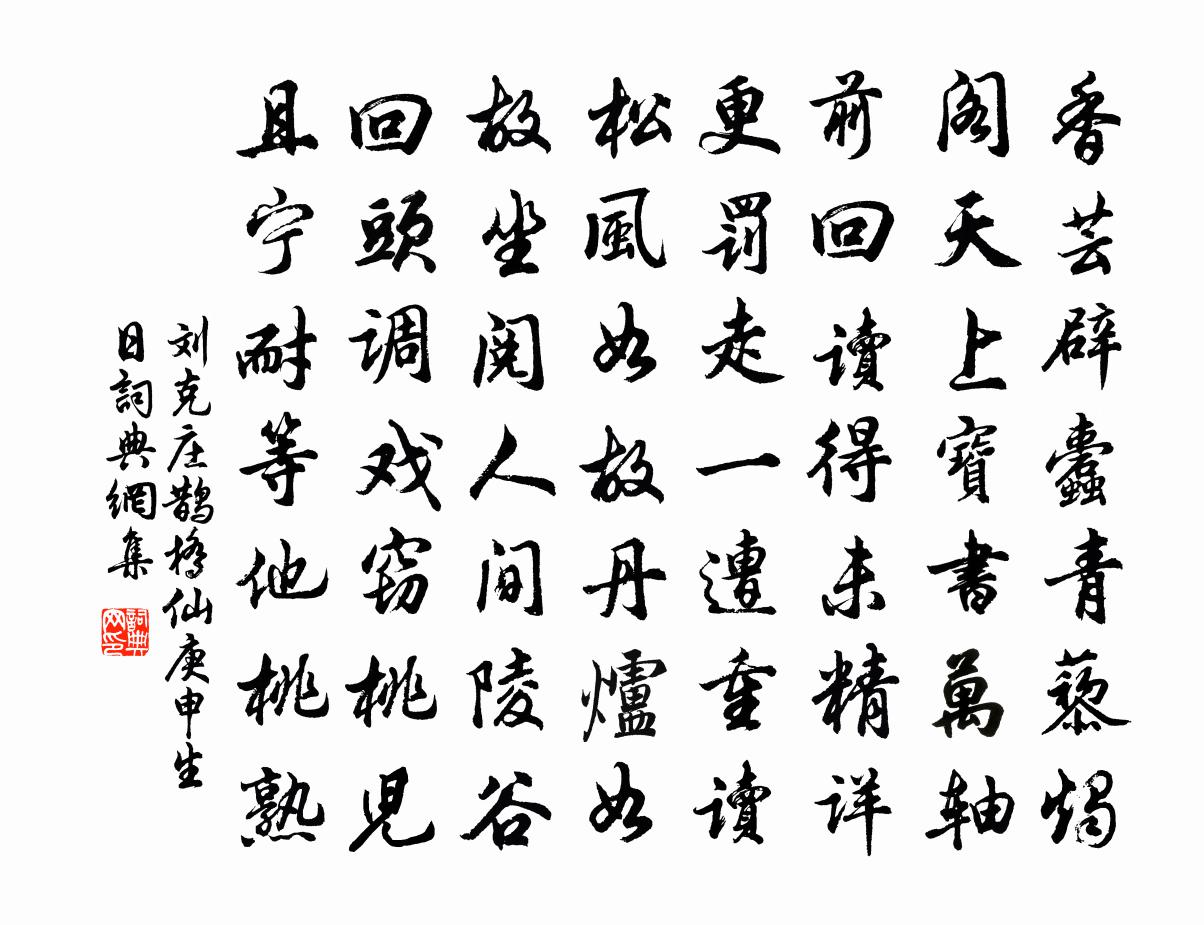 香芸辟蠹青藜燭
阁天上寶書萬轴
前回讀得未精详
更罰走一遭重讀
松風如故丹爐如
故坐阅人间陵谷
回頭调戏窃桃児
且宁耐等他桃熟
刘克庄鹊橋仙庚申生
日詞典網集
詞典网印